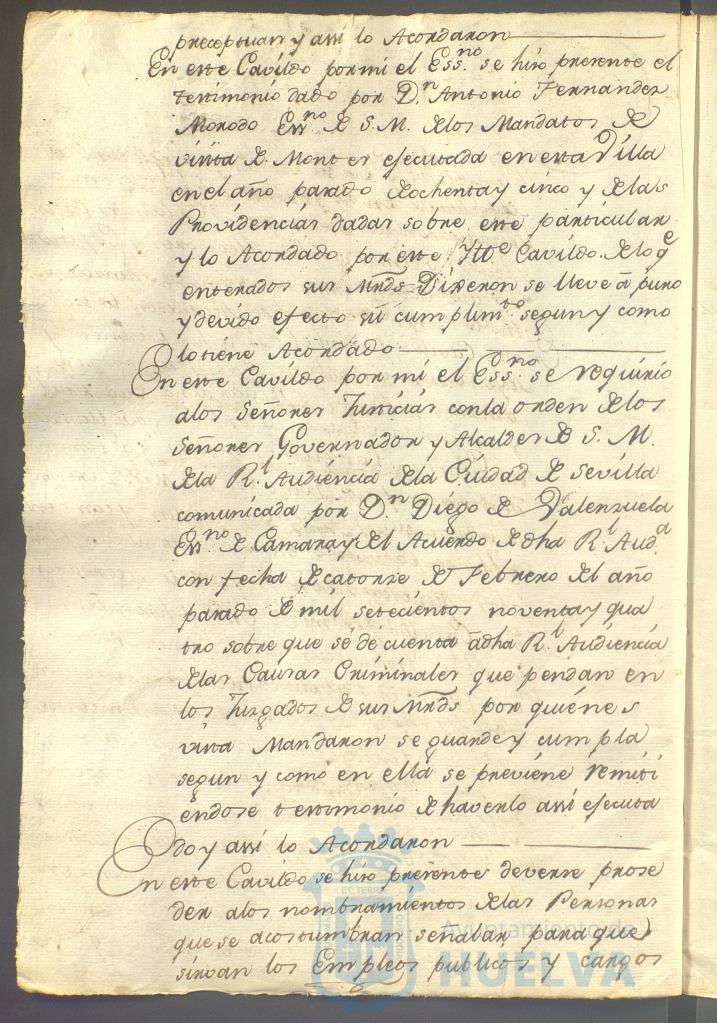 preceptuan y assi lo Acordaron
En este Cavildo por mi el Ess.no se hizo presente el
testimonio dado por D.n Antonio Fernandez
Morodo Ess.no de S. M. de los Mandatos de
visita de Montes ejecutada en esta Villa
en el año pasado de ochenta y cinco y de las
Providencias dadas sobre este particular
y lo Acordado por este Ytt.e Cavildo. de lo q.e
enterados sus Mrds Dixeron se lleve á puro
y devido efecto su cumplim.to segun y como
lo tiene Acordado
En este Cavildo por mi el Ess.no se requirio
a los Señores Justicias con la orden de los
Señores Governador y Alcaldes de S. M.
de la R.l Audiencia de la Ciudad de Sevilla
comunicada por D.n Diego de Valenzuela
Ess.no de Camara y del Acuerdo de dha R.l Aud.a
con fecha de catorze de Febrero del año
pasado de mil setecientos noventa y qua
tro sobre que se dé cuenta á dha R.l Audiencia
de las Causas Criminales que pendan en
los Juzgados de sus Mrds por quienes
vista Mandaron se guarde y cumpla
segun y como en ella se previene remiti
endose testimonio de haverlo assi ejecuta
do y assi lo Acordaron
En este Cavildo se hizo presente deverse prose
der a los nombramientos de las Personas
que se acostumbran señalar para que
sirvan los Empleos publicos y cargos
Ayuntamiento de
HUELVA